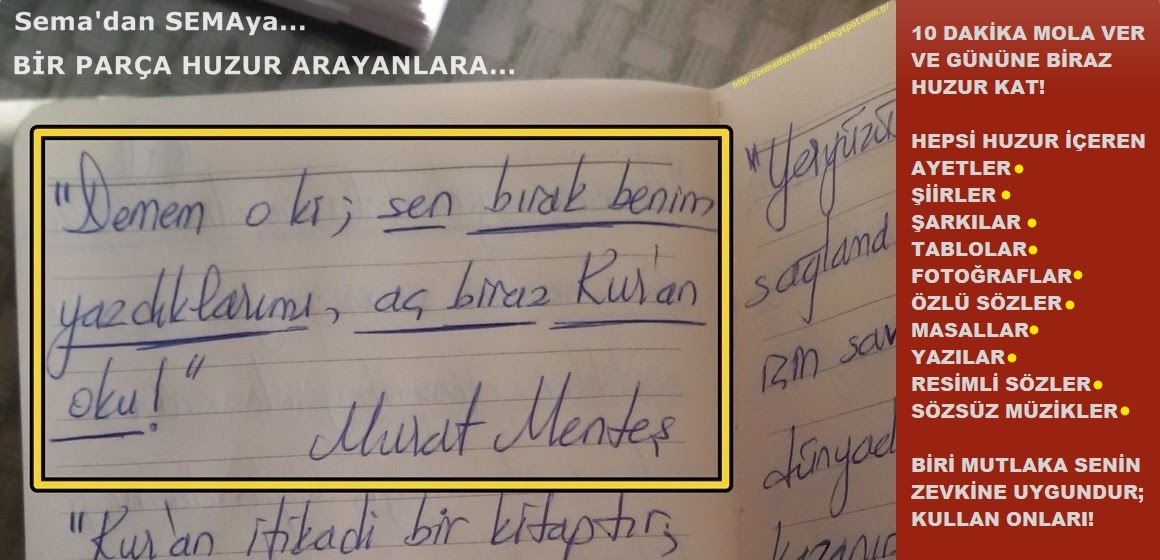 Sema'dan SEMAya...
BİR PARÇA HUZUR ARAYANLARA...
http://semadansemaya.blogspot.com.tr/
"Demem o ki; sen bırak benim
yazdıklarımı, aç biraz Kur'an
oku!"
Murat Menteş
"Kur'an itikadi bir kitaptır;
"Yeryüzü
sağland
dünyad
10 DAKİKA MOLA VER
VE GÜNÜNE BİRAZ
HUZUR KAT!
HEPSİ HUZUR İÇEREN
AYETLER
ŞİİRLER
ŞARKILAR
TABLOLAR
FOTOĞRAFLAR
ÖZLÜ SÖZLER
MASALLAR
YAZILAR
RESİMLİ SÖZLER
SÖZSÜZ MÜZİKLER
BİRİ MUTLAKA SENİN
ZEVKİNE UYGUNDUR;
KULLAN ONLARI!